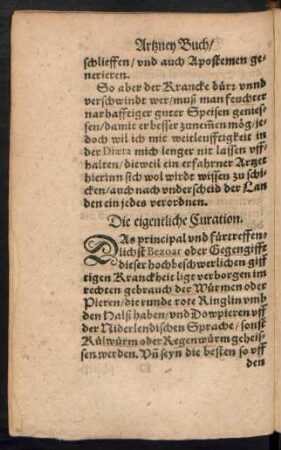 Artzney Buch/
schlieffen/ vnd auch Apostemen ge-
nerieren.
So aber der Krancke dürz vnnd
verschwindt wer/ muß man feuchter
narhafftiger guter Speisen genies-
sen/ damit er besser zunemen mög/ je-
doch wil ich mit weitleuffigkeit in
der Diæta mich lenger nit lassen vff-
halten/ dieweil ein erfahrner Artzet
hierinn sich wol wirdt wissen zu schi-
cken/ auch nach vnderscheid der Lan
den ein jedes verordnen.
Die eigentliche Curation.
DAs principal vnd fürtreffen-
lichst Bezoar oder Gegengifft
dieser hochbeschwerlichen giff
tigen Kranckheit ligt verborgen im
rechten gebrauch der Würmen oder
Pieren/ die runde rote Ringlin vmb
den Halß haben/ vnd Dowpieren vff
der Niderlendischen Sprache/ sonst
Rülwürm oder Regenwürm geheis-
sen werden. Vñ seyn die besten so vff
den